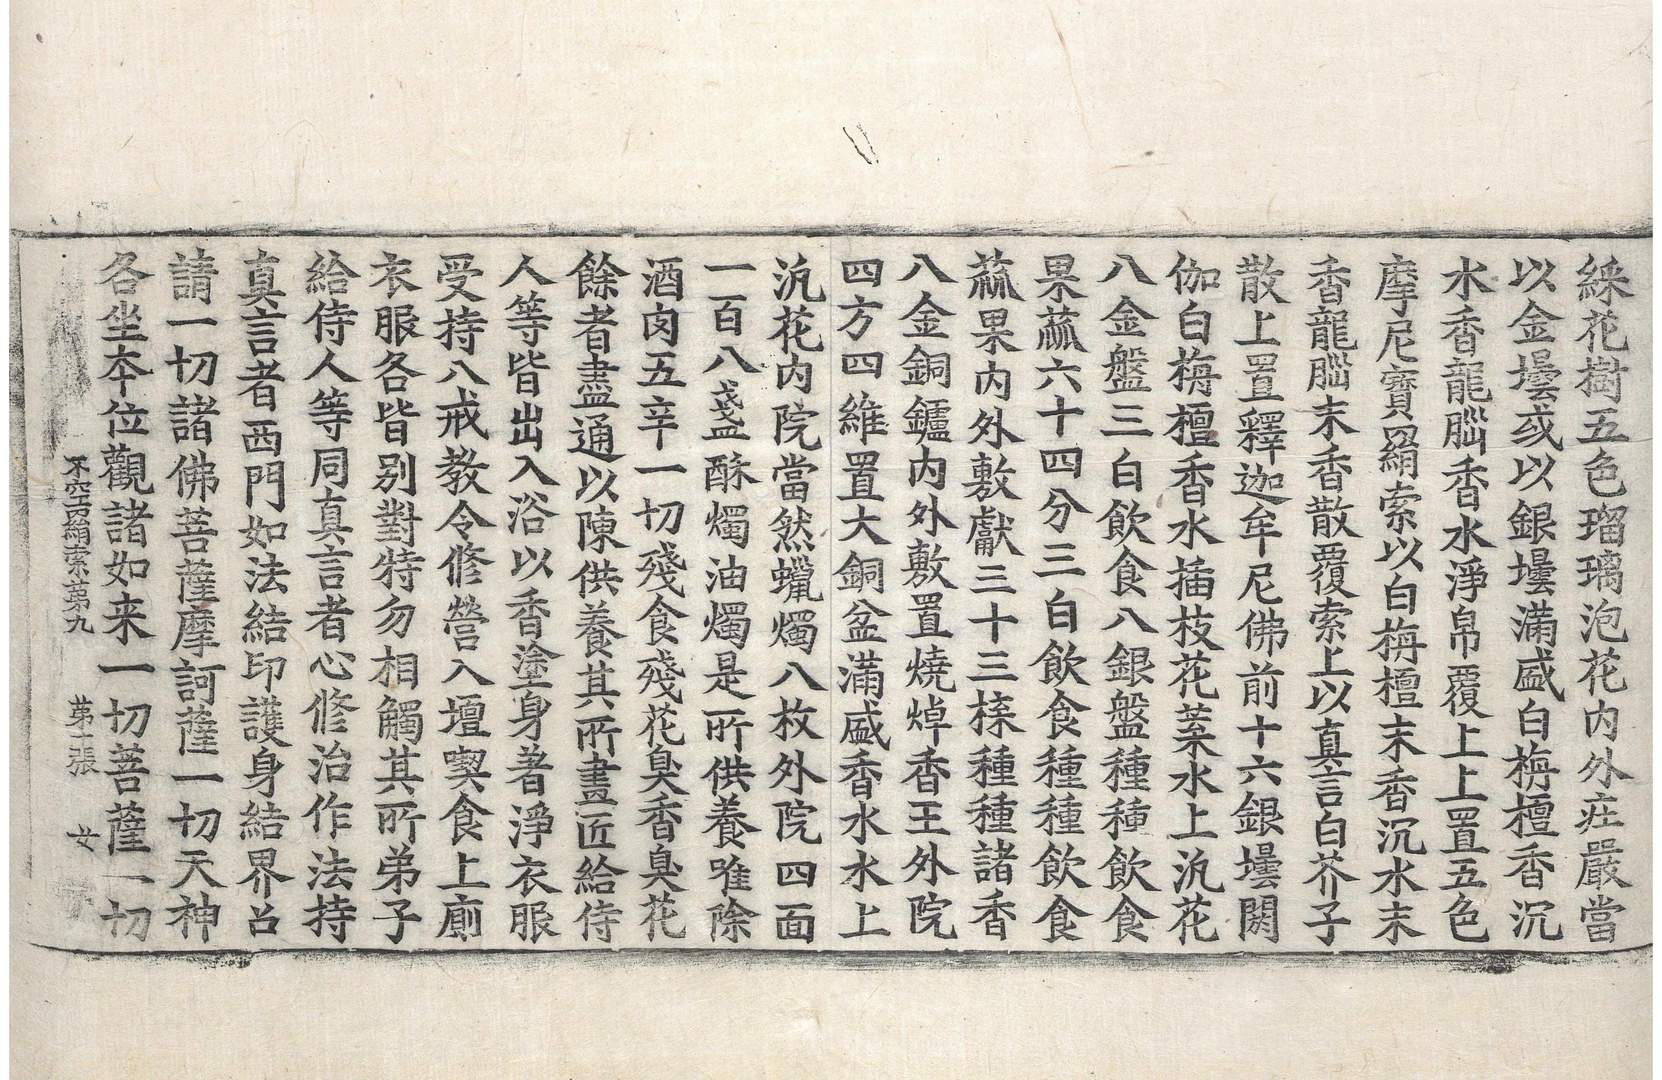 綵花樹五色瑠璃泡花内外庄嚴當
以金壜或以銀壜滿盛白栴檀香沉
水香龍腦香水淨帛覆上上置五色
摩尼寶羂索以白栴檀末香沉水末
香龍腦末香散覆索上以真言白芥子
散上置釋迦牟尼佛前十六銀壜閼
伽白栴檀香水插枝花葉水上汎花
八金盤三白飲食八銀盤種種飲食
果蓏六十四分三白飲食種種飲食
蓏果内外敷獻三十三㨾種種諸香
八金銅鑪内外敷置燒焯香王外院
四方四維置大銅盆滿盛香水水上
汎花内院當然蠟燭八枚外院四面
一百八盞酥燭油燭是所供養唯除
酒肉五辛一切殘食殘花臭香臭花
餘者盡通以陳供養其所畫匠給侍
人等皆出入浴以香塗身著淨衣服
受持八戒教令修營入壇喫食上廁
衣服各皆别對特勿相觸其所弟子
給侍人等同真言者心修治作法持
真言者西門如法結印護身結界召
請一切諸佛菩薩摩訶薩一切天神
各坐本位觀諸如来一切菩薩一切
不空羂索第九 第十張 女